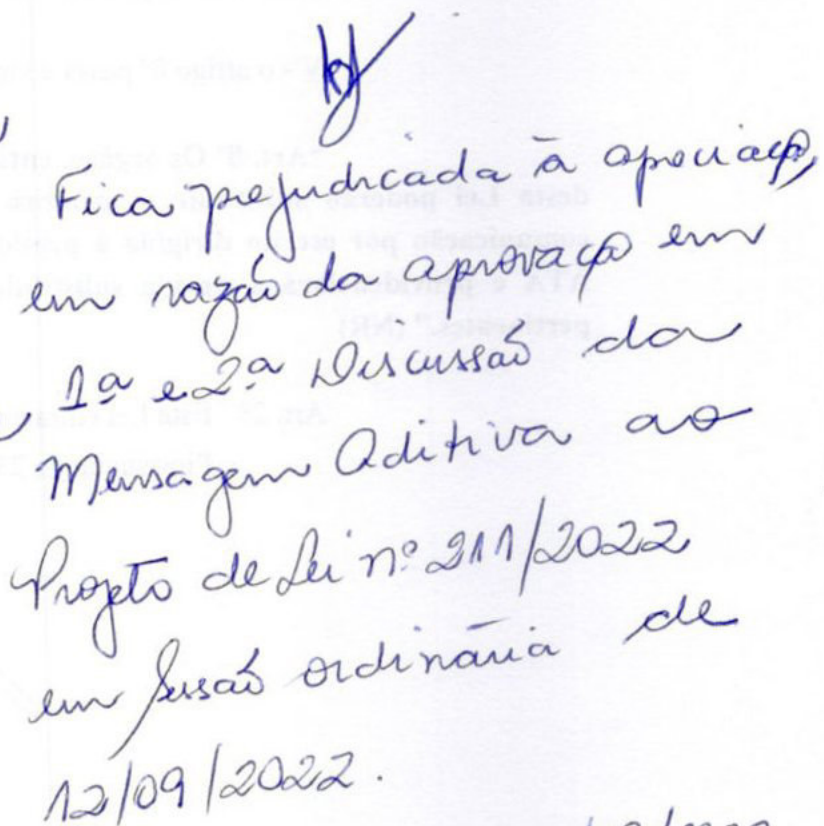 Fica prejudicada à apreciação,
em razão da aprovação em
1ª e 2ª Discussão da
Mensagem Aditiva ao
Projeto de Lei nº 211/2022
em Sessão ordinária de
12/09/2022.